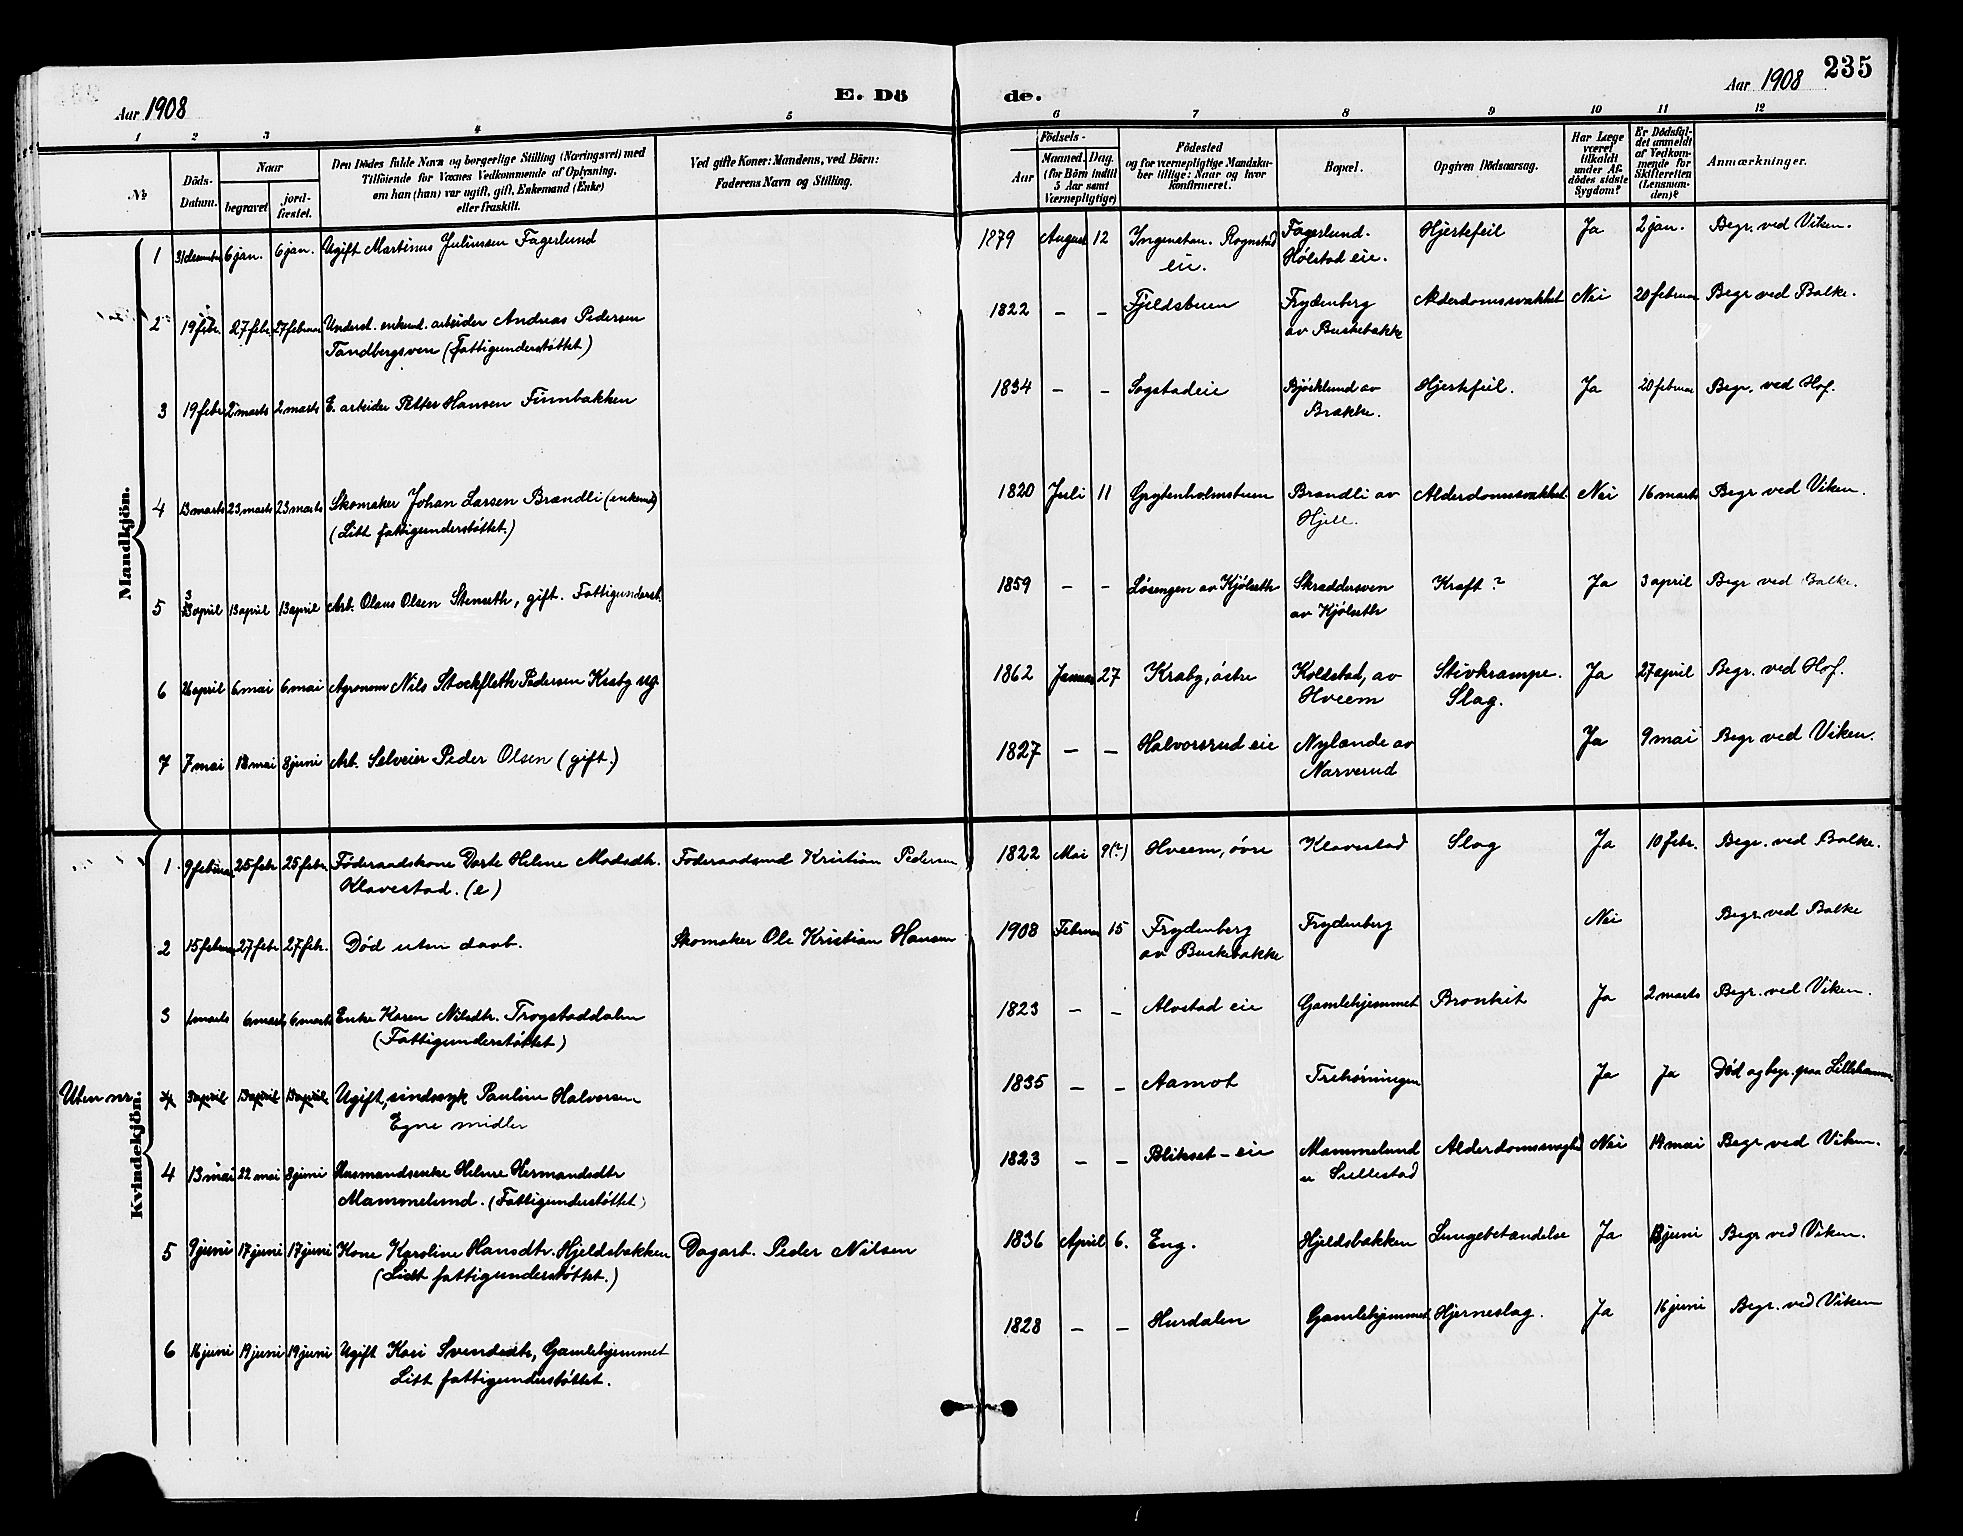 Aar 1908
E. Dö
de.
Aar 1908
235
1 2 3 4 5 6 7 8 9 10 11 12
№
Döds-
Datum.
Naar
begravet
jord-
fæstet.
Den Dödes fulde Navn og borgerlige Stilling (Næringsvei) med
Tilföiende for Voxnes Vedkommende af Oplysning,
om han (hun) var ugift, gift, Enkemand (Enke)
eller fraskilt.
Ved gifte Koner: Mandens, ved Börn:
Faderens Navn og Stilling.
Födsels-
Aar
Maaned. Dag.
(for Börn indtil
5 Aar samt
Værnepligtige)
Födested
og for værnepligtige Mandsku-
ber tillige: Naar og hvor
konfirmeret.
Bopæl.
Opgiven Dödsaarsag.
Har Læge
været
tilkaldt
under Af-
dödes sidste
Sygdom?
Er Dödsfal-
det anmeldt
af Vedkom-
mende for
Skifteretten
(Lensman-
den)?
Anmærkninger.
Mandkjön.
1 31 desember 6 jan. 6 jan. Ugift Martinus Juliusen Fagerlund 1879 August 12 Rognstad Fagerlund. Hjertefeil Ja 2 jan. Begr. ved Viken.
eie. Hólstad eie.
2 19 febr. 27 febr. 27 februar Underst. enkem. arbeider Andreas Pedersen 1822 – – Fjeldstuen Frydenberg Alderdomssvakhet Nei 20 februar Begr. ved Balke.
Tandbergsven (Fattigunderstøttet) av Buskebakke
3 19 febr. 2 marts 2 marts E. arbeider Petter Hansen Finnbakken 1834 – – Sogstadeie Bjórklund av Hjertefeil. Ja 20 februar Begr. ved Hof.
Brakke.
4 13 marts 23 marts 23 marts Skomaker Johan Larsen Brændli (enkem) 1820 Juli 11 Grytenholmstuen Brændli av Alderdomssvakhet Nei 16 marts Begr. ved Viken.
(Litt fattigunderstøttet.) Hjell.
5 3 april 13 april 13 april Arb. Olaus Olsen Stenseth, gift. Fattigunderst. 1859 – – Lósengen av Kjólseth Skraddersven Kræft? Ja 3 april Begr. ved Balke.
av Kjólseth
6 26 april 6 mai 6 mai Agronom Nils Stockfleth Pedersen Kraby ug. 1862 Januar 27 Kraby, óstre Kollstad, av Stivkrampe. Ja 27 april Begr. ved Hof.
Hveem Slag.
7 7 mai 18 mai 8 juni Arb. Selveier Peder Olsen (gift.) 1827 – – Halvorsrud eie Nylænde av Ja 9 mai Begr. ved Viken.
Narverud
Kvindekjön.
1 9 februar 25 febr. 25 febr. Föderaadskone Dorte Helene Madsdtr. Föderaadsmd Kristian Pedersen 1822 Mai 9(?) Hveem, óvre Klavestad Slag Ja 10 febr. Begr. ved Balke.
Klavestad. (e)
2 15 februar 27 febr. 27 febr. Død uten daab. Skomaker Ole Kristian Hansen 1908 Februar 15 Frydenberg Frydenberg Nei Begr. ved Balke
av Buskebakke
3 1 marts 6 marts 6 marts Enke Karen Nilsdtr. Trogstaddalen 1823 – – Alvstad eie Gamlehjemmet Bronkit Ja 2 marts Begr. ved Viken.
(Fattigunderstøttet)
Uten nr. 4 3 april 13 april 13 april Ugift, sindssyk Pauline Halvorsen 1835 – – Aamot Trehórningen Ja Ja Død og begr. paa Lillehammer
Egne midler
4 13 mai 22 mai 8 juni Husmandsenke Helene Hermandsdtr 1823 – – Blikset-eie Mammelund Alderdomssvaghet Nei 14 mai Begr. ved Viken.
Mammelund. (Fattigunderstøttet) u Sullestad
5 9 juni 17 juni 17 juni Kone Karoline Hansdtr. Hjeldsbakken Dagarb. Peder Nilsen 1836 April 6. Eng. Hjeldsbakken Lungebetændelse Ja 13 juni Begr. ved Viken.
(Lidt fattigunderstøttet.)
6 16 juni 19 juni 19 juni Ugift Kari Svendsdtr, Gamlehjemmet 1828 – – Hurdalen Gamlehjemmet Hjerneslag. Ja 16 juni Begr. ved Viken
Litt fattigunderstøttet.